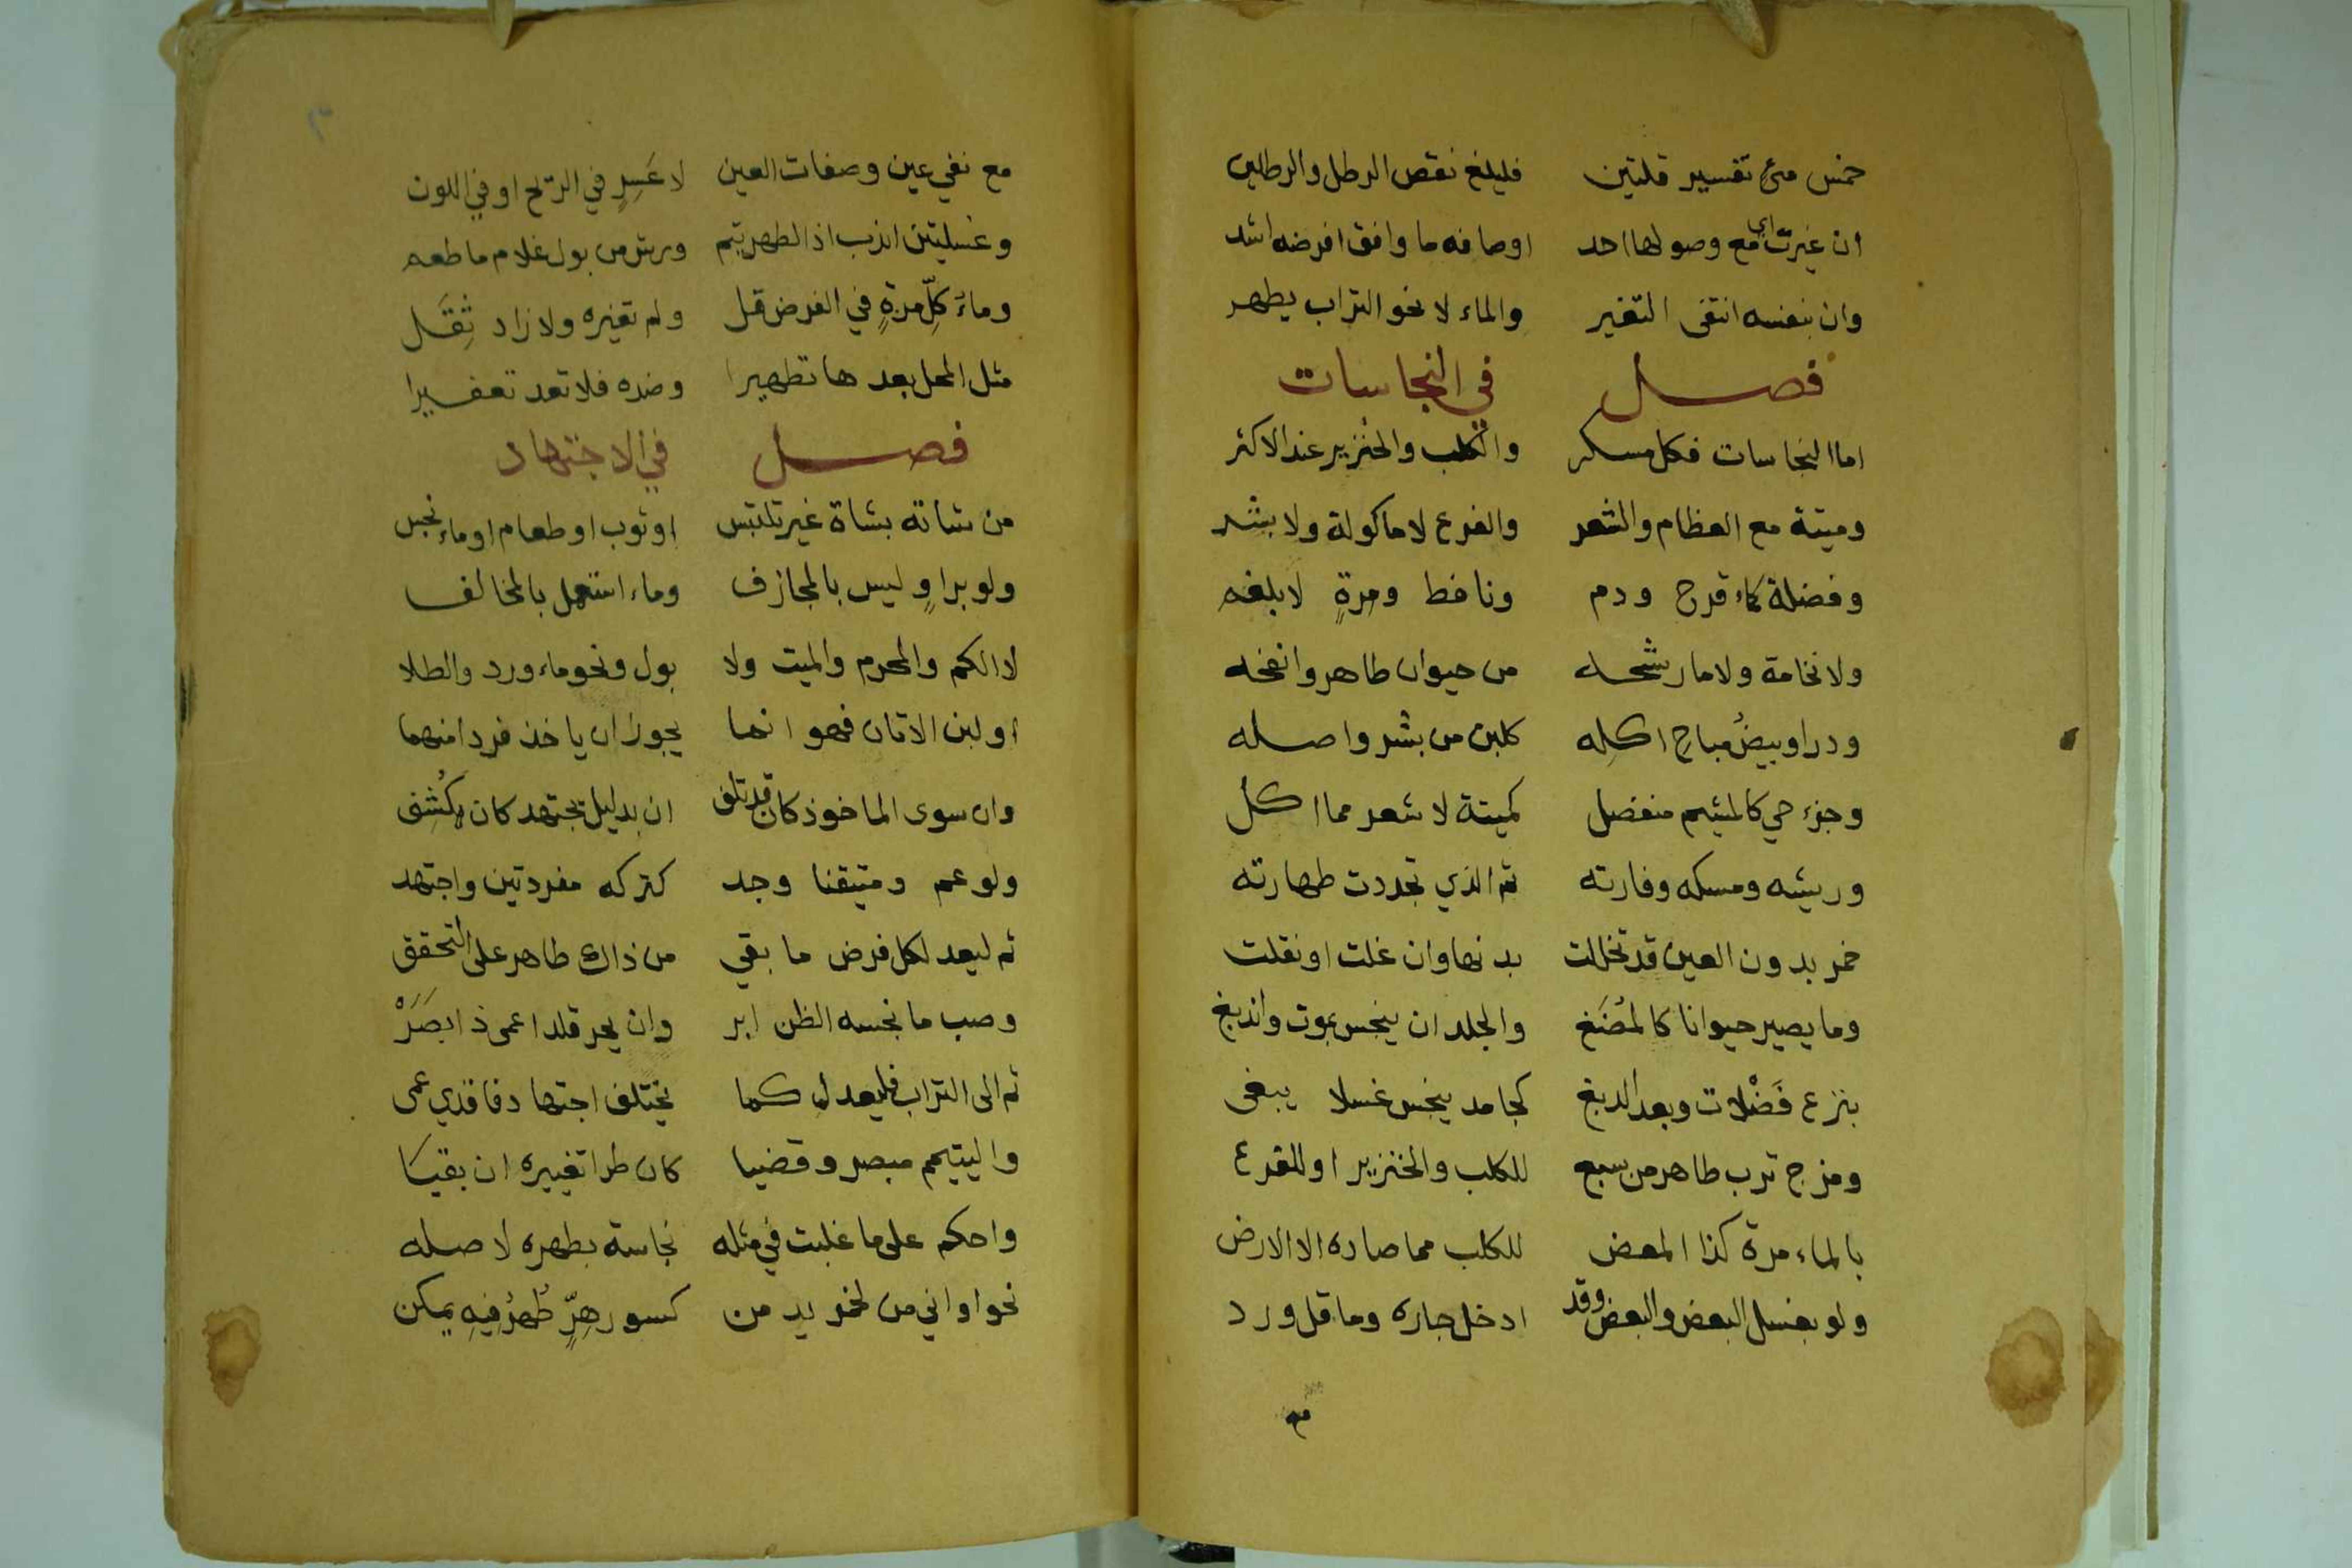 خمس مئ تفسير قلتين فليلغ نقص الرطل والرطلين
ان غيرت اي مع وصولها احد اوصافه ما وافق افرضه اشد
وان بنفسه انتفى التغير والماء لا نحو التراب يطهر
فصل في النجاسات
اما النجاسات فكل مسكر والكلب والخنزير عند الاكثر
وميتة مع العظام والشعر والفرع لا ماكولة ولا بشر
وفضلة كماء قرح ودم ونافط ومرة لا بلغم
ولا نخامة ولا ما رشحه من حيوان طاهر وانفحه
ودر او بيض مباح اكله كلبن من بشر واصله
وجزء حي كالمشيم منفصل كميتة لا شعر مما اكل
وريشه ومسكه وفارته ثم الذي تجددت طهارته
خمر بدون العين قد تخللت بدنها وان غلت او نقلت
وما يصير حيوانا كالمضغ والجلد ان ينجس بموت واندبغ
بنزع فضلات وبعد الدبغ كجامد ينجس غسلا يبغى
ومزج ترب طاهر من سبع للكلب والخنزير او للفرع
بالماء مرة كذا المعض للكلب مما صاده الا الارض
ولو بغسل البعض والبعض وقد ادخل جاره وما قل ورد
مع
مع نفي عين وصفات العين لا عسر في الريح او في اللون
وغسلتين اندب اذ الطهر يتم ورش من بول غلام ما طعم
وماء كل مرة في الفرض قل ولم تغيره ولا زاد ثقل
مثل المحل بعدها تطهيرا وضده فلا تعد تعفيرا
فصل في الاجتهاد
من شاته بشاة غير تلتبس او ثوب او طعام او ماء نجس
ولو براو وليس بالمجازف وماء استعمل بالمخالف
لا الكم والمحرم والميت ولا بول ونحو ماء ورد والطلا
او لبن الاتان فهو انما يجوز ان ياخذ فردا منهما
وان سوى الماخوذ كان قد تلف ان بدليل يجتهد كان يكشف
ولو عم ومتيقنا وجد كتركه مفردتين واجتهد
ثم ليعد لكل فرض ما بقي من ذاك طاهر على التحقق
وصب ما نجسه الظن ابر وان يحر قلد اعمى ذا بصر
ثم الى التراب فليعد كما يختلف اجتهاد فاقدي عمى
واليتيمم مبصر وقضيا كان طرا تغييره ان بقيا
واحكم على ما غلبت في مثله نجاسة بطهره لاصله
نحو اواني من لخمر يدمن كسور هر طهر فيه يمكن